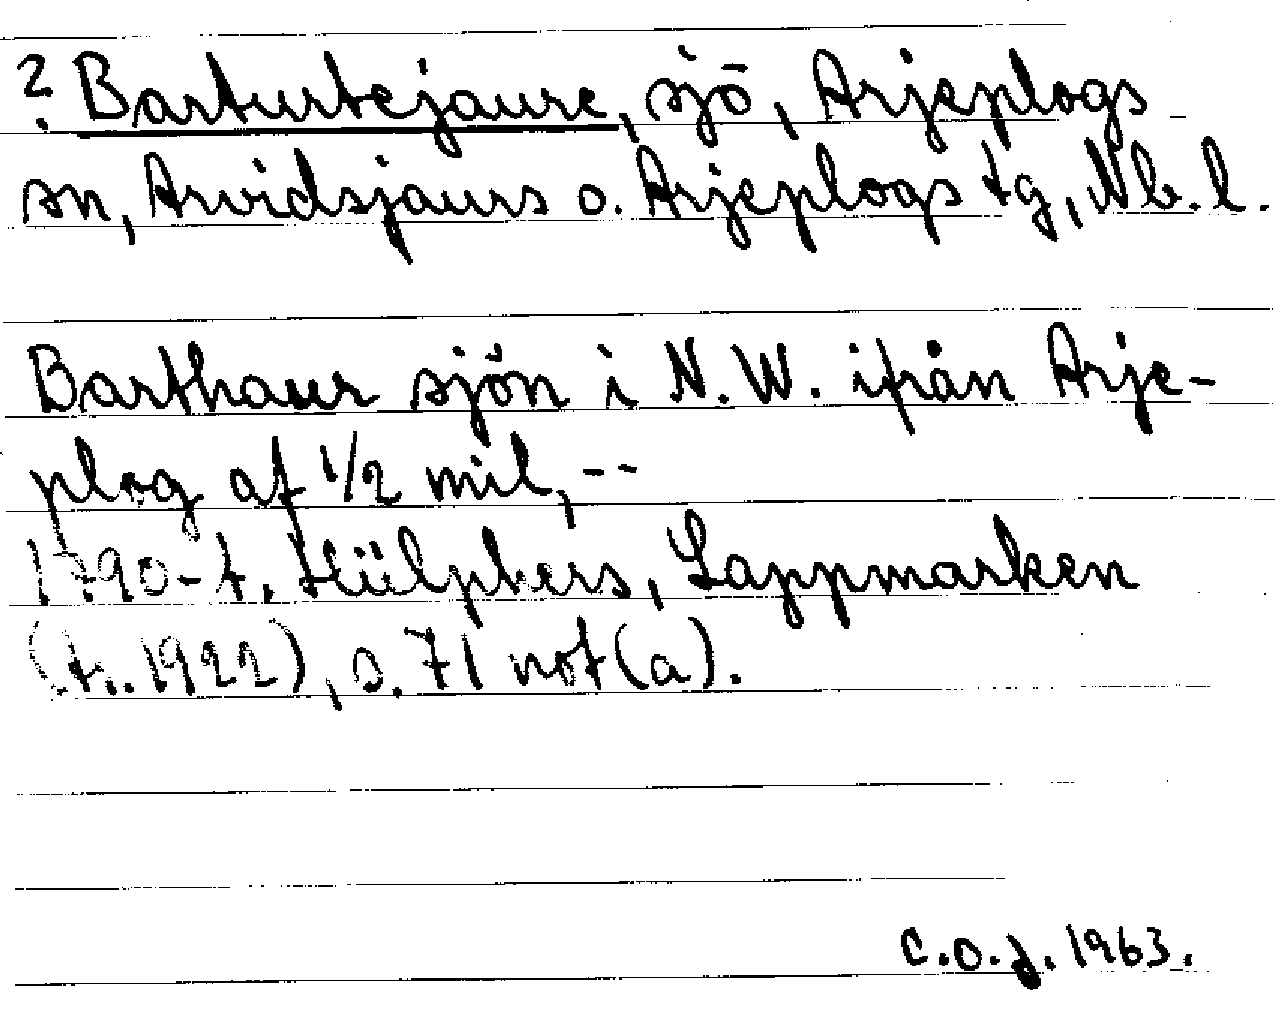 ? Barturtejaure, sjö, Arjeplogs
sn, Arvidsjaurs o. Arjeplogs tg, Nb. l.
Barthaur sjön i N. W. ifrån Arje-
plog af 1/2 mil, --
1790-t. Hülphers, Lappmarken
(tr. 1922), s. 71 not (a).
C.O.J. 1963.